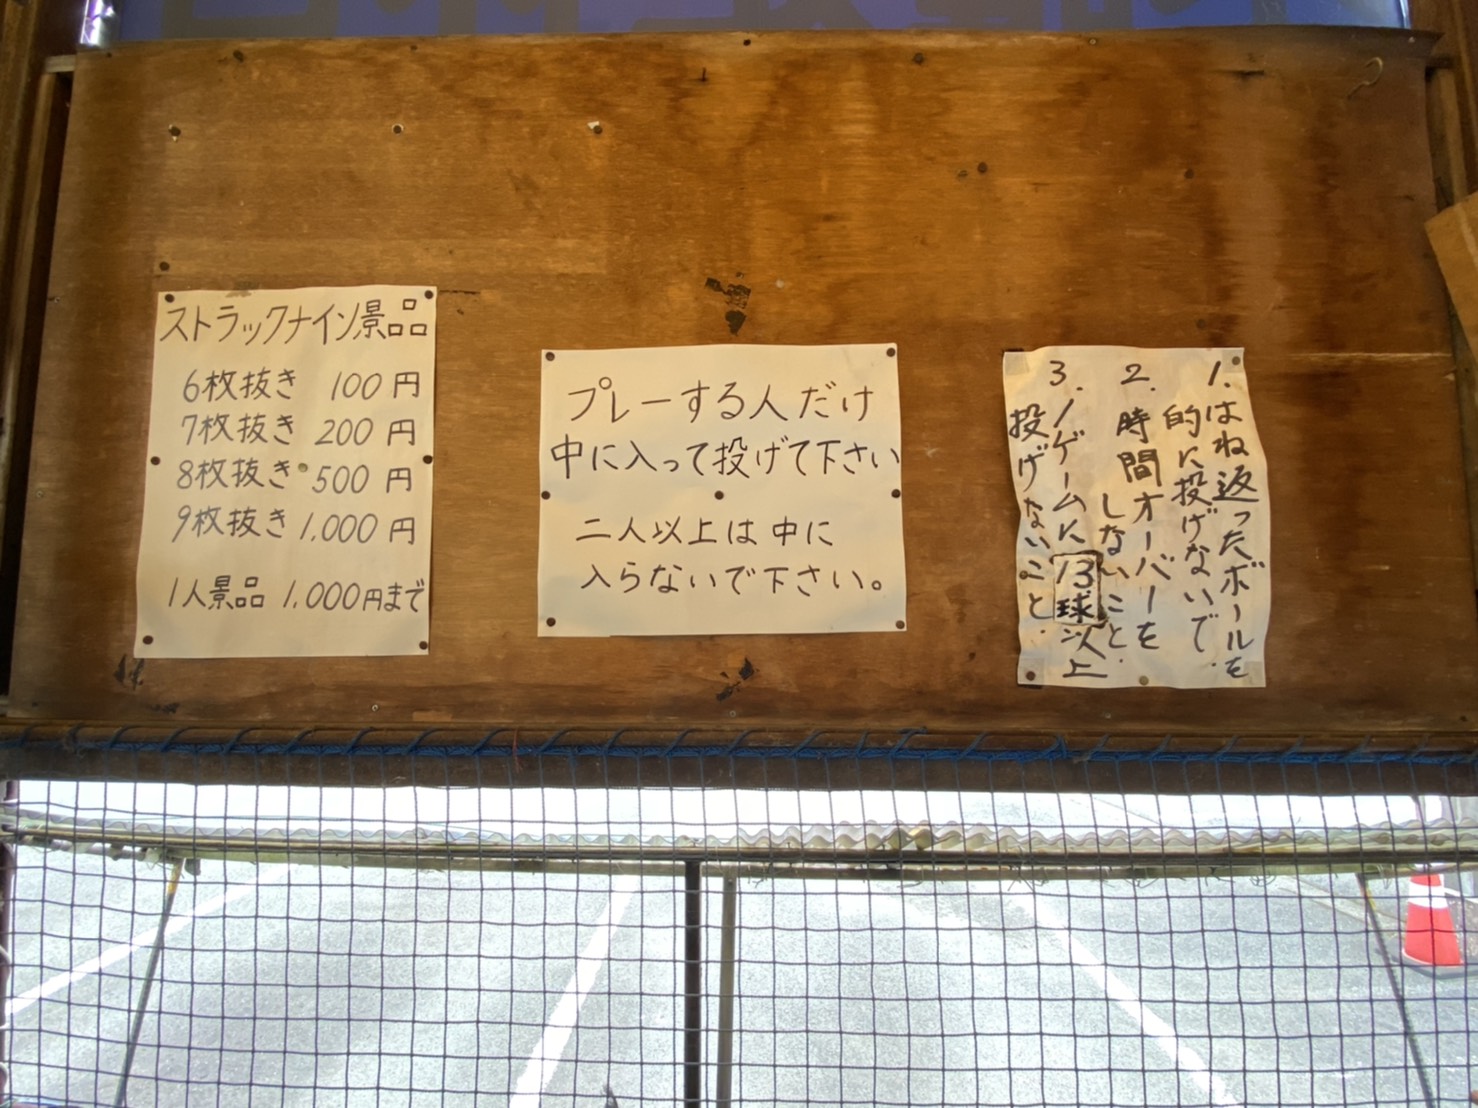 ストラックナイン景品
6枚抜き 100円
7枚抜き 200円
8枚抜き 500円
9枚抜き 1,000円
1人景品 1,000円まで
プレーする人だけ
中に入って投げて下さい
二人以上は中に
入らないで下さい。
1.はね返ったボールを
的に投げないで.
2.時間オーバーを
しないこと.
3.1ゲームに13球以上
投げないこと.